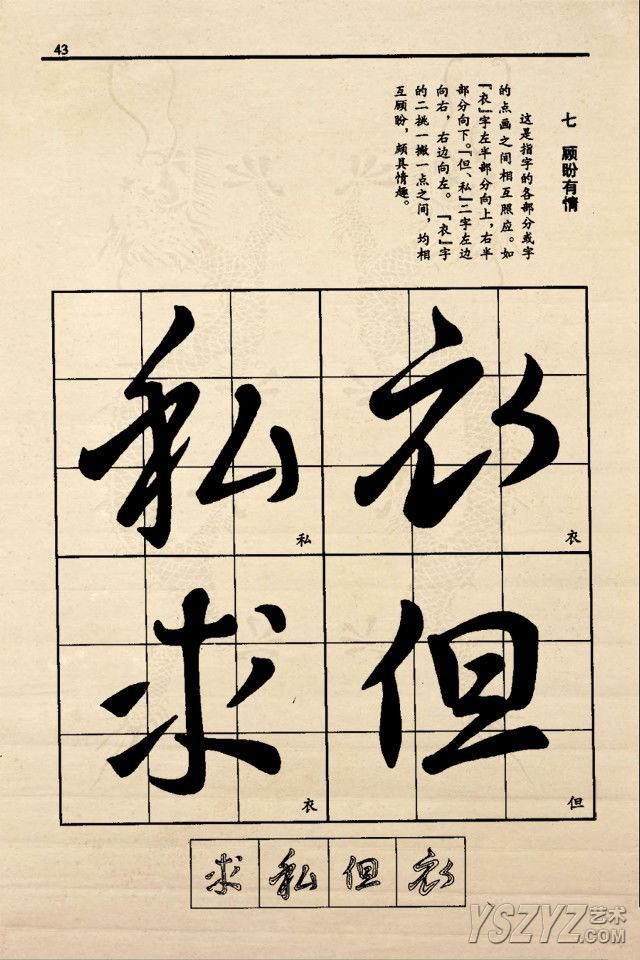 43
七 顾盼有情
这是指字的各部分或字
的点画之间相互照应。如
『衣』字左半部分向上，右半
部分向下。『但、私』二字左边
向右，右边向左。『衣』字
的二挑一撇一点之间，均相
互顾盼，颇具情趣。
衣
衣
但
但
私
私
求
衣
求 私 但 衣
YSZYZ艺术.COM